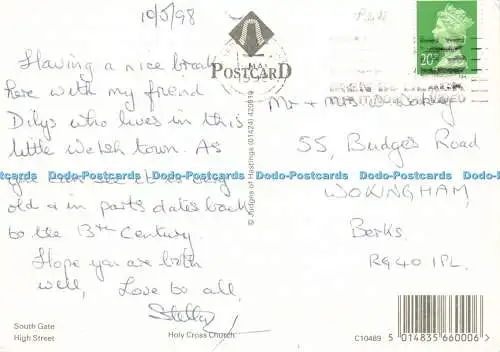 10/5/98
Having a nice break
here with my friend
Dilys who lives in this
little Welsh town. As
you can see it is very
old & in parts dates back
to the 13th Century
Hope you are both
well, Love to all,
Stella
South Gate
High Street
Holy Cross Church
POSTCARD
© Judges of Hastings (01424) 420919
20
Mr + Mrs
55, Budges Road
WOKINGHAM,
Berks
RG40 1PL.
C10489
5 014835 660006
Dodo-Postcards Dodo-Postcards Dodo-Postcards Dodo-Postcards